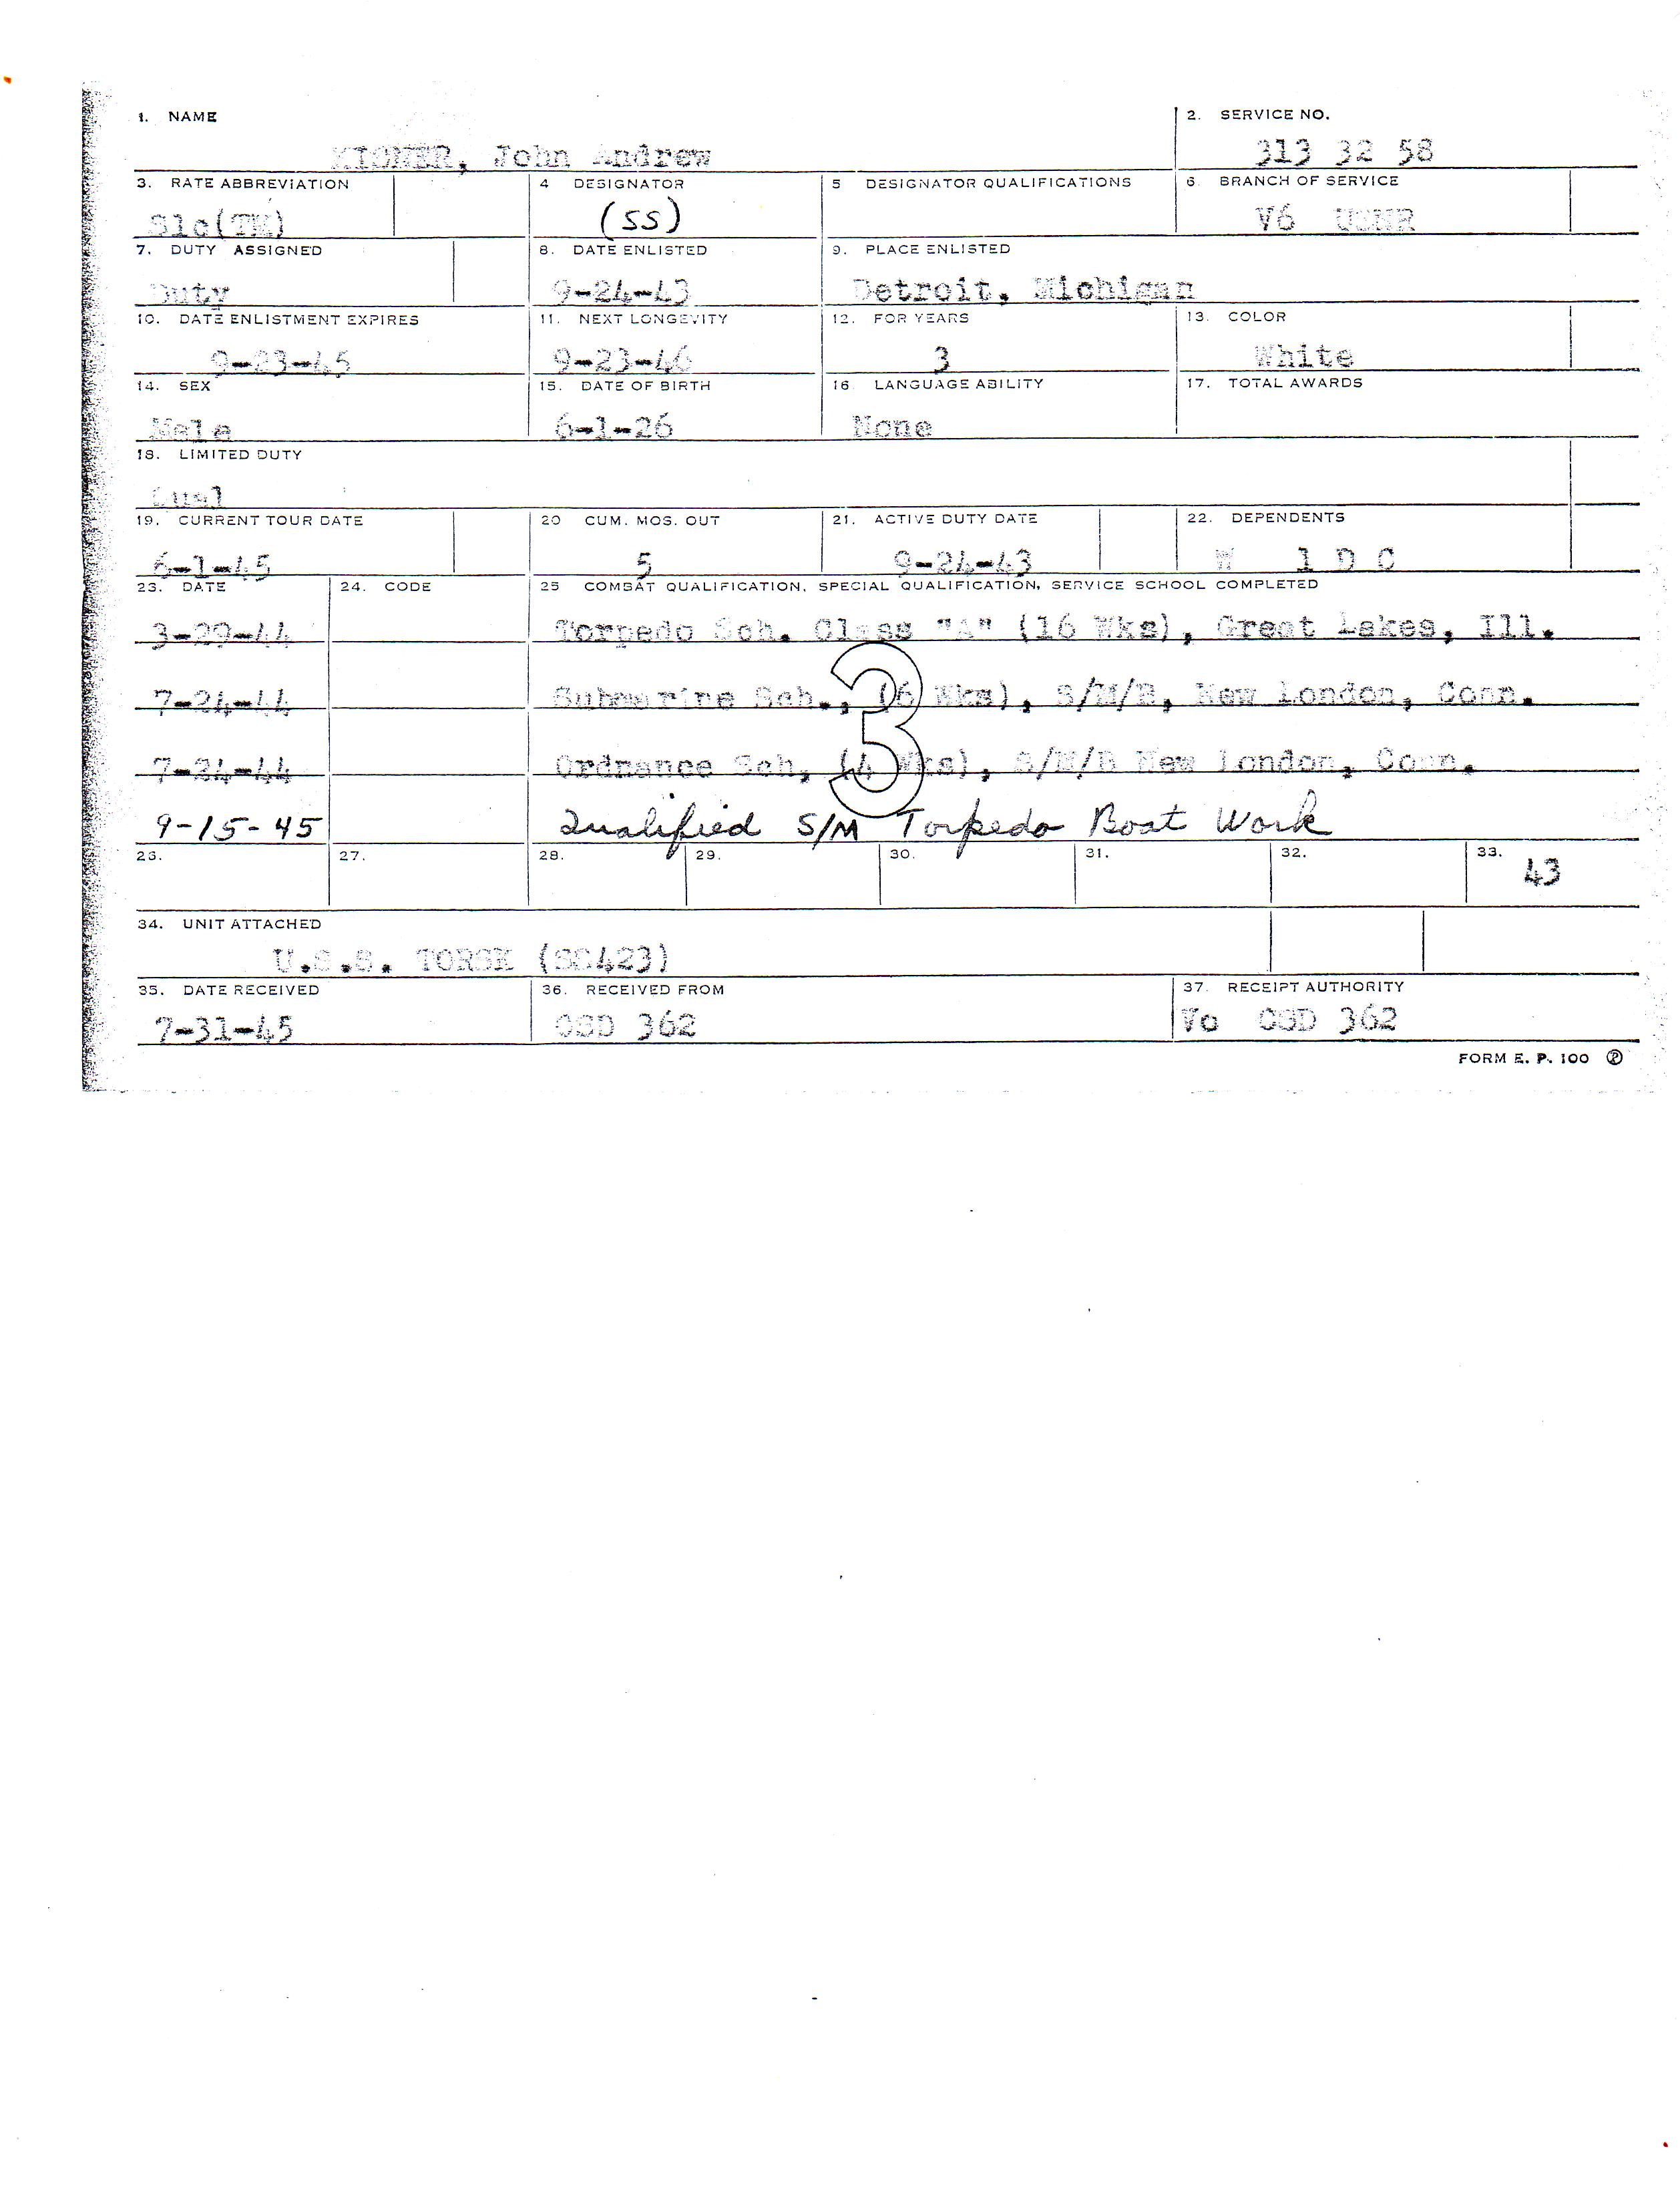 1. NAME 2. SERVICE NO.
John Andrew 313 32 58
3. RATE ABBREVIATION 4 DESIGNATOR 5 DESIGNATOR QUALIFICATIONS 6. BRANCH OF SERVICE
S1c(TM) (SS) V6 USNR
7. DUTY ASSIGNED 8. DATE ENLISTED 9. PLACE ENLISTED
Duty 9-24-43 Detroit, Michigan
10. DATE ENLISTMENT EXPIRES 11. NEXT LONGEVITY 12. FOR YEARS 13. COLOR
9-23-45 9-23-46 3 White
14. SEX 15. DATE OF BIRTH 16 LANGUAGE ABILITY 17. TOTAL AWARDS
Male 6-1-26 None
18. LIMITED DUTY
Qual
19. CURRENT TOUR DATE 20 CUM. MOS. OUT 21. ACTIVE DUTY DATE 22. DEPENDENTS
6-1-45 5 9-24-43 W 1 D C
23. DATE 24. CODE 25 COMBAT QUALIFICATION, SPECIAL QUALIFICATION, SERVICE SCHOOL COMPLETED
3-29-44 Torpedo Sch. Class "A" (16 Wks), Great Lakes, Ill.
7-24-44 Submarine Sch., (6 Wks), S/M/B, New London, Conn.
3
7-24-44 Ordnance Sch, (4 Wks), S/M/B New London, Conn.
9-15-45 Qualified S/M Torpedo Boat Work
26. 27. 28. 29. 30. 31. 32. 33.
43
34. UNIT ATTACHED
U.S.S. TORSK (SS423)
35. DATE RECEIVED 36. RECEIVED FROM 37. RECEIPT AUTHORITY
7-31-45 CSD 362 Vo CSD 362
FORM E. P. 100 P